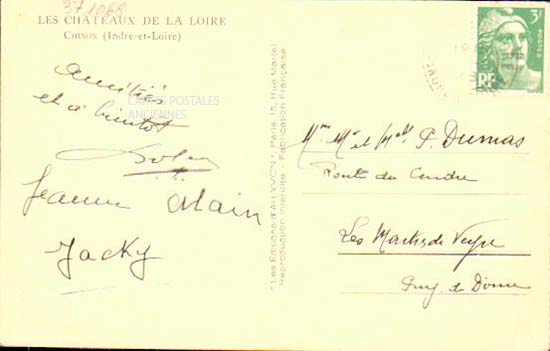 371068
LES CHÂTEAUX DE LA LOIRE
CHINON (Indre-et-Loire)
Amitiés
et à bientôt
CARTES POSTALES
ANCIENNES
Jeanne Alain
Jacky
"Les Editions d'Art YVON", Paris, 15, Rue Martel
Reproduction Interdite - Fabrication Française
3F
POSTES
RF
Mme Mr et Melle P. Dumas
Pont du Cendre
Les Martres de Veyre
Puy de Dôme